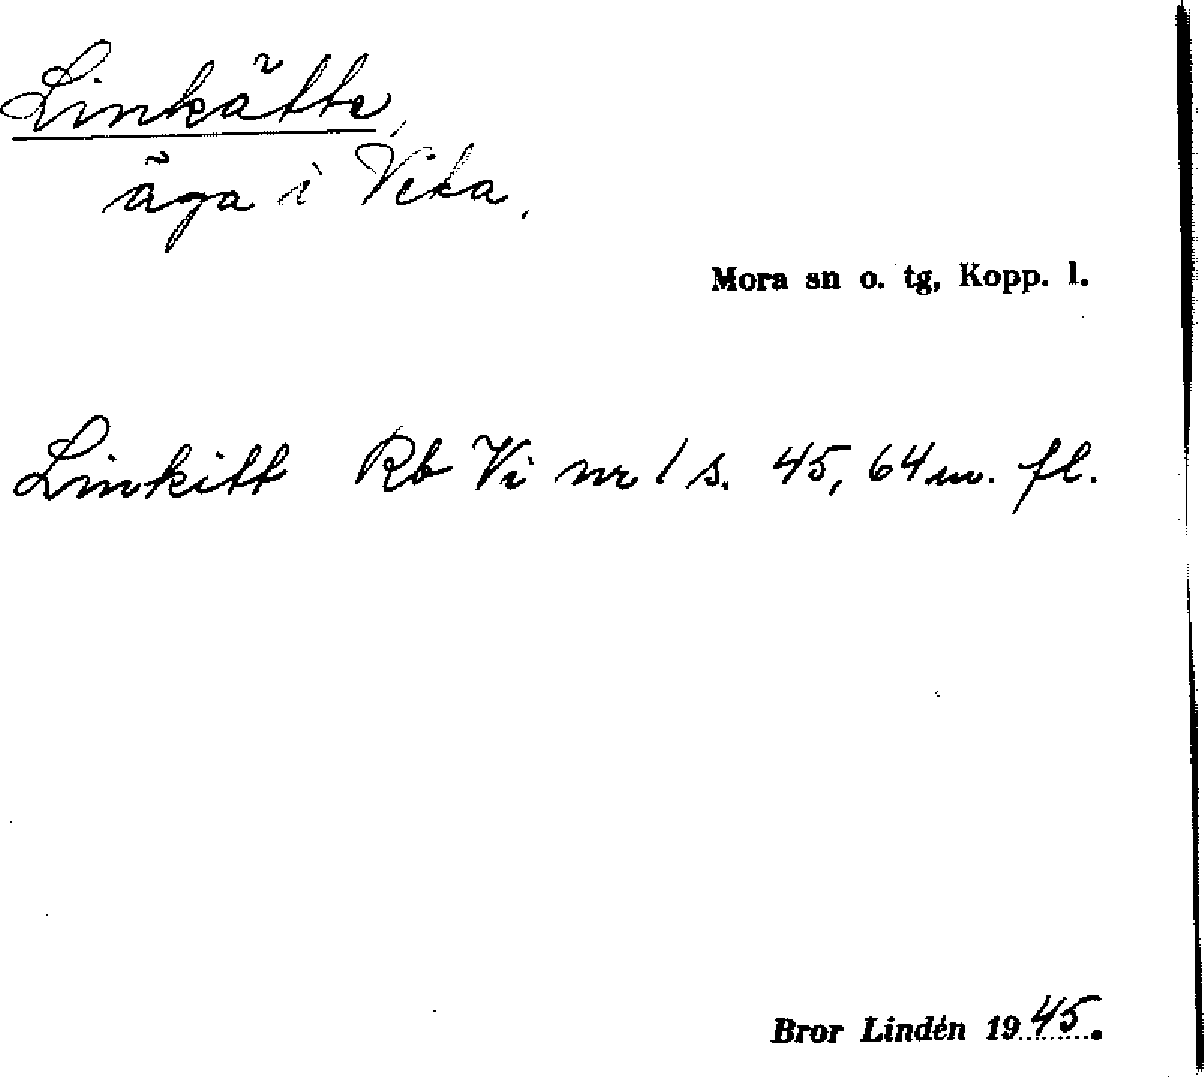 Linkätte,
äga i Vika.
Mora sn o. tg, Kopp. l.
Linkitt Rb Vi nr 1 s. 45, 64 m. fl.
Bror Lindén 1945.